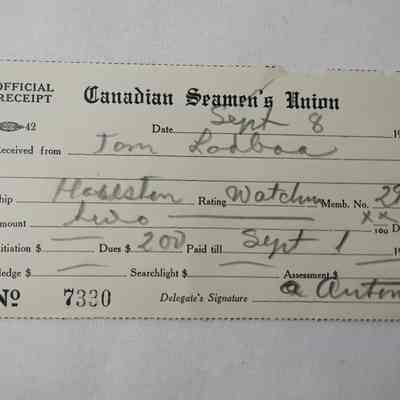 OFFICIAL Canadian Seamen's Union
RECEIPT
42 Date Sept 8 19
Received from Tom
Ship Rating Memb. No. 29
Amount two xx/100 D
Initiation $ — Dues $ 200 Paid till Sept 1 19
Pledge $ — Searchlight $ — Assessment $ —
No 7330 Delegate's Signature a